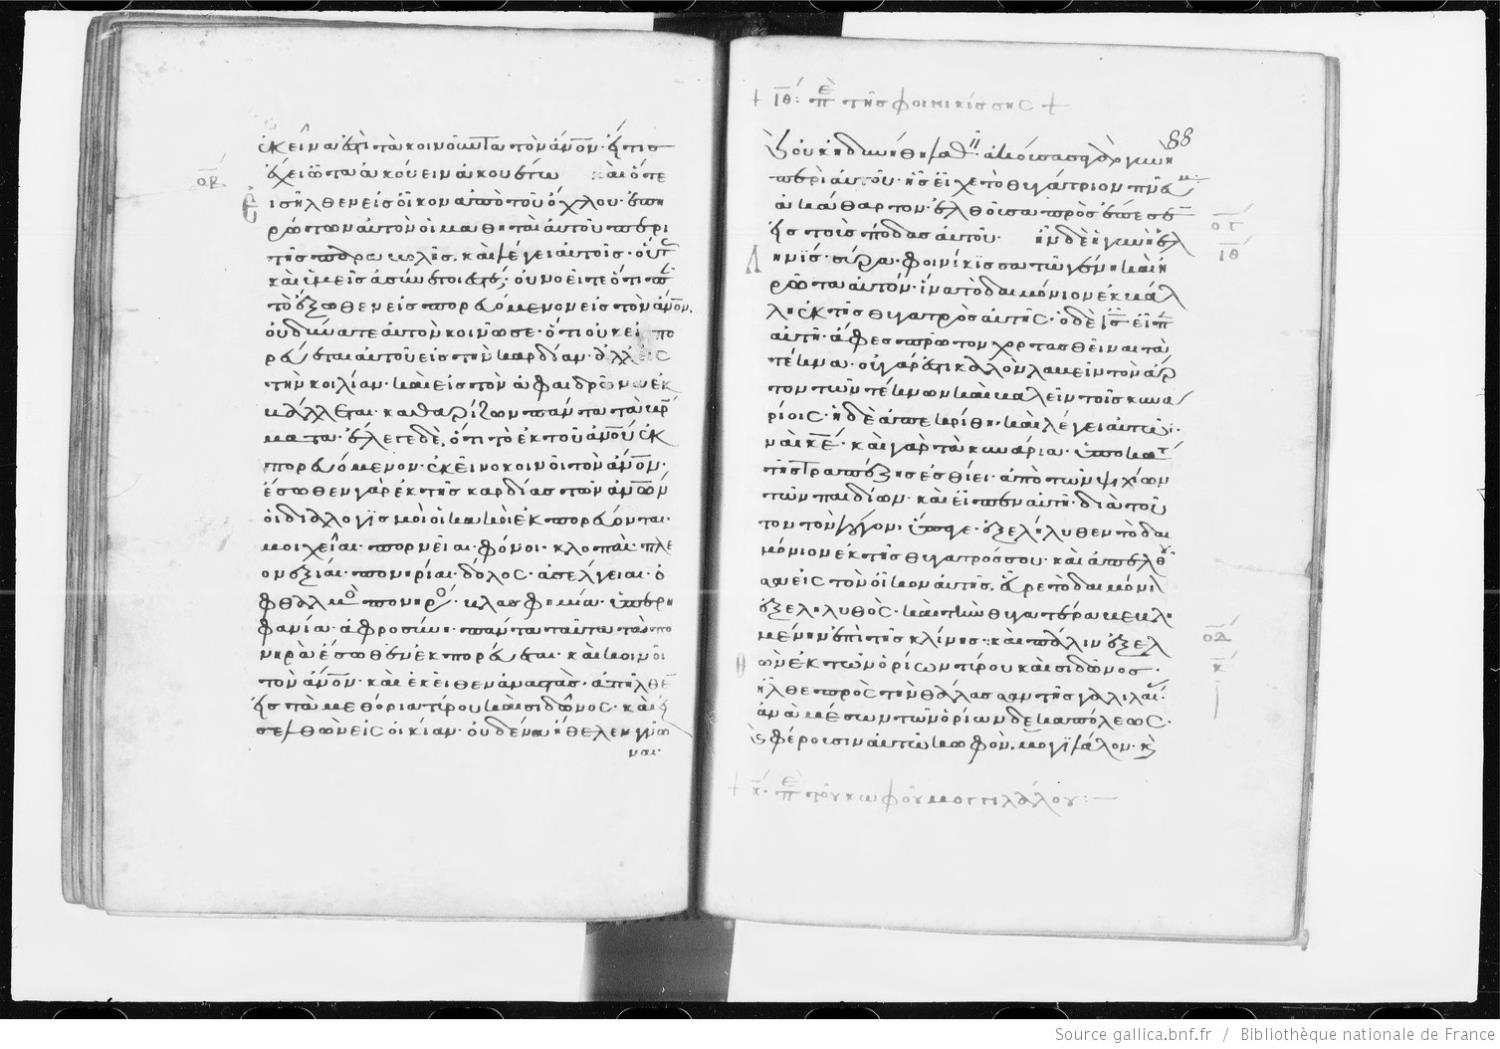 ἐκεῖνά ἐστι τὰ κοινοῦντα τὸν ἄνον· εἴ τις
ἔχει ὦτα ἀκούειν ἀκουέτω καὶ ὅτε
οβ
εἰσῆλθεν εἰς οἶκον ἀπὸ τοῦ ὄχλου· ἐπη
ρώτων αὐτὸν οἱ μαθηταὶ αὐτοῦ περὶ
τῆς παραβολῆς. καὶ λέγει αὐτοῖς· οὕτ
καὶ ὑμεῖς ἀσύνετοί ἐστε; οὐ νοεῖτε ὅτι π
τὸ ἔξωθεν εἰσπορευόμενον εἰς τὸν ἄνον,
οὐ δύναται αὐτὸν κοινῶσαι· ὅτι οὐκ εἰσπο
ρεύεται αὐτοῦ εἰς τὴν καρδίαν· ἀλλ εἰς
τὴν κοιλίαν· καὶ εἰς τὸν ἀφαιδρῶνα ἐκ
βάλλεται· καθαρίζων πάντα τὰ βρώ
ματα· ἔλεγε δὲ, ὅτι τὸ ἐκ τοῦ ἀνου ἐκ
πορευόμενον· ἐκεῖνο κοινοῖ τὸν ἄνον·
ἔσωθεν γὰρ ἐκ τῆς καρδίας τῶν ἀνων
οἱ διαλογισμοὶ οἱ κακοὶ ἐκπορεύονται·
μοιχεῖαι· πορνεῖαι· φόνοι· κλοπαὶ· πλε
ονεξίαι· πονηρίαι· δόλος· ἀσέλγειαι· ὀ
φθαλμὸ πονηρό· βλασφημία· ὑπερη
φανία· ἀφροσύνη· πάντα ταῦτα τὰ πο
νηρὰ ἔσωθεν ἐκπορεύεται· καὶ κοινοῖ
τὸν ἄνον· καὶ ἐκεῖθεν ἀναστὰς· ἀπῆλθε
εἰς τὰ μεθόρια τύρου καὶ σιδῶνος· καὶ εἰ
σελθὼν εἰς οἰκίαν· οὐδένα ἤθελεν γνῶ
ναι·
+ ιθ: πε τῆς φοινικίσσης +
88
καὶ οὐκ ἠδυνήθη λαθ· ἀκούσασα γὰρ γυνὴ
περὶ αὐτοῦ· ἧς εἶχε τὸ θυγάτριον πνα
ἀκάθαρτον· ἐλθοῦσα προσέπεσε
εἰς τοὺς πόδας αὐτοῦ· ἦν δὲ ἡ γυνὴ ἑλ
ογ
ιθ
ληνὶς· σύρα· φοινίκισσα τῶ γένει· καὶ ἠ
ρώτα αὐτὸν· ἵνα τὸ δαιμόνιον ἐκβάλ
λη ἐκ τῆς θυγατρὸς αὐτῆς· ὁ δὲ ις εἶπ
αὐτῆ· ἄφες πρῶτον χορτασθῆναι τὰ
τέκνα· οὐ γάρ ἐστι καλὸν λαβεῖν τὸν ἄρ
τον τῶν τέκνων καὶ βαλεῖν τοῖς κυνα
ρίοις· ἡ δὲ ἀπεκρίθη· καὶ λέγει αὐτῶ·
ναὶ κε· καὶ γὰρ τὰ κυνάρια· ὑποκάτ
τῆς τραπέζης ἐσθίει· ἀπὸ τῶν ψιχίων
τῶν παιδίων· καὶ εἶπεν αὐτῆ· διὰ τοῦ
τον τὸν λόγον, ὕπαγε· ἐξελήλυθεν τὸ δαι
μόνιον ἐκ τῆς θυγατρός σου· καὶ ἀπελθοῦ
σα εἰς τὸν οἶκον αὐτῆς, εὗρε τὸ δαιμόνι
ἐξεληλυθὸς· καὶ τὴν θυγατέρα βεβλη
μένην ἐπὶ τῆς κλίνης· καὶ πάλιν ἐξελ
οδ
κ
θὼν ἐκ τῶν ὁρίων τύρου καὶ σιδῶνος·
ἦλθε πρὸς τὴν θάλασσαν τῆς γαλιλαί·
ἀνὰ μέσων τῶν ὁρίων δεκαπόλεως·
φέρουσιν αὐτῶ κωφὸν, μογιλάλον· κ
+ κ· πε τοῦ κωφοῦ μογγιλάλου:—
Source gallica.bnf.fr / Bibliothèque nationale de France